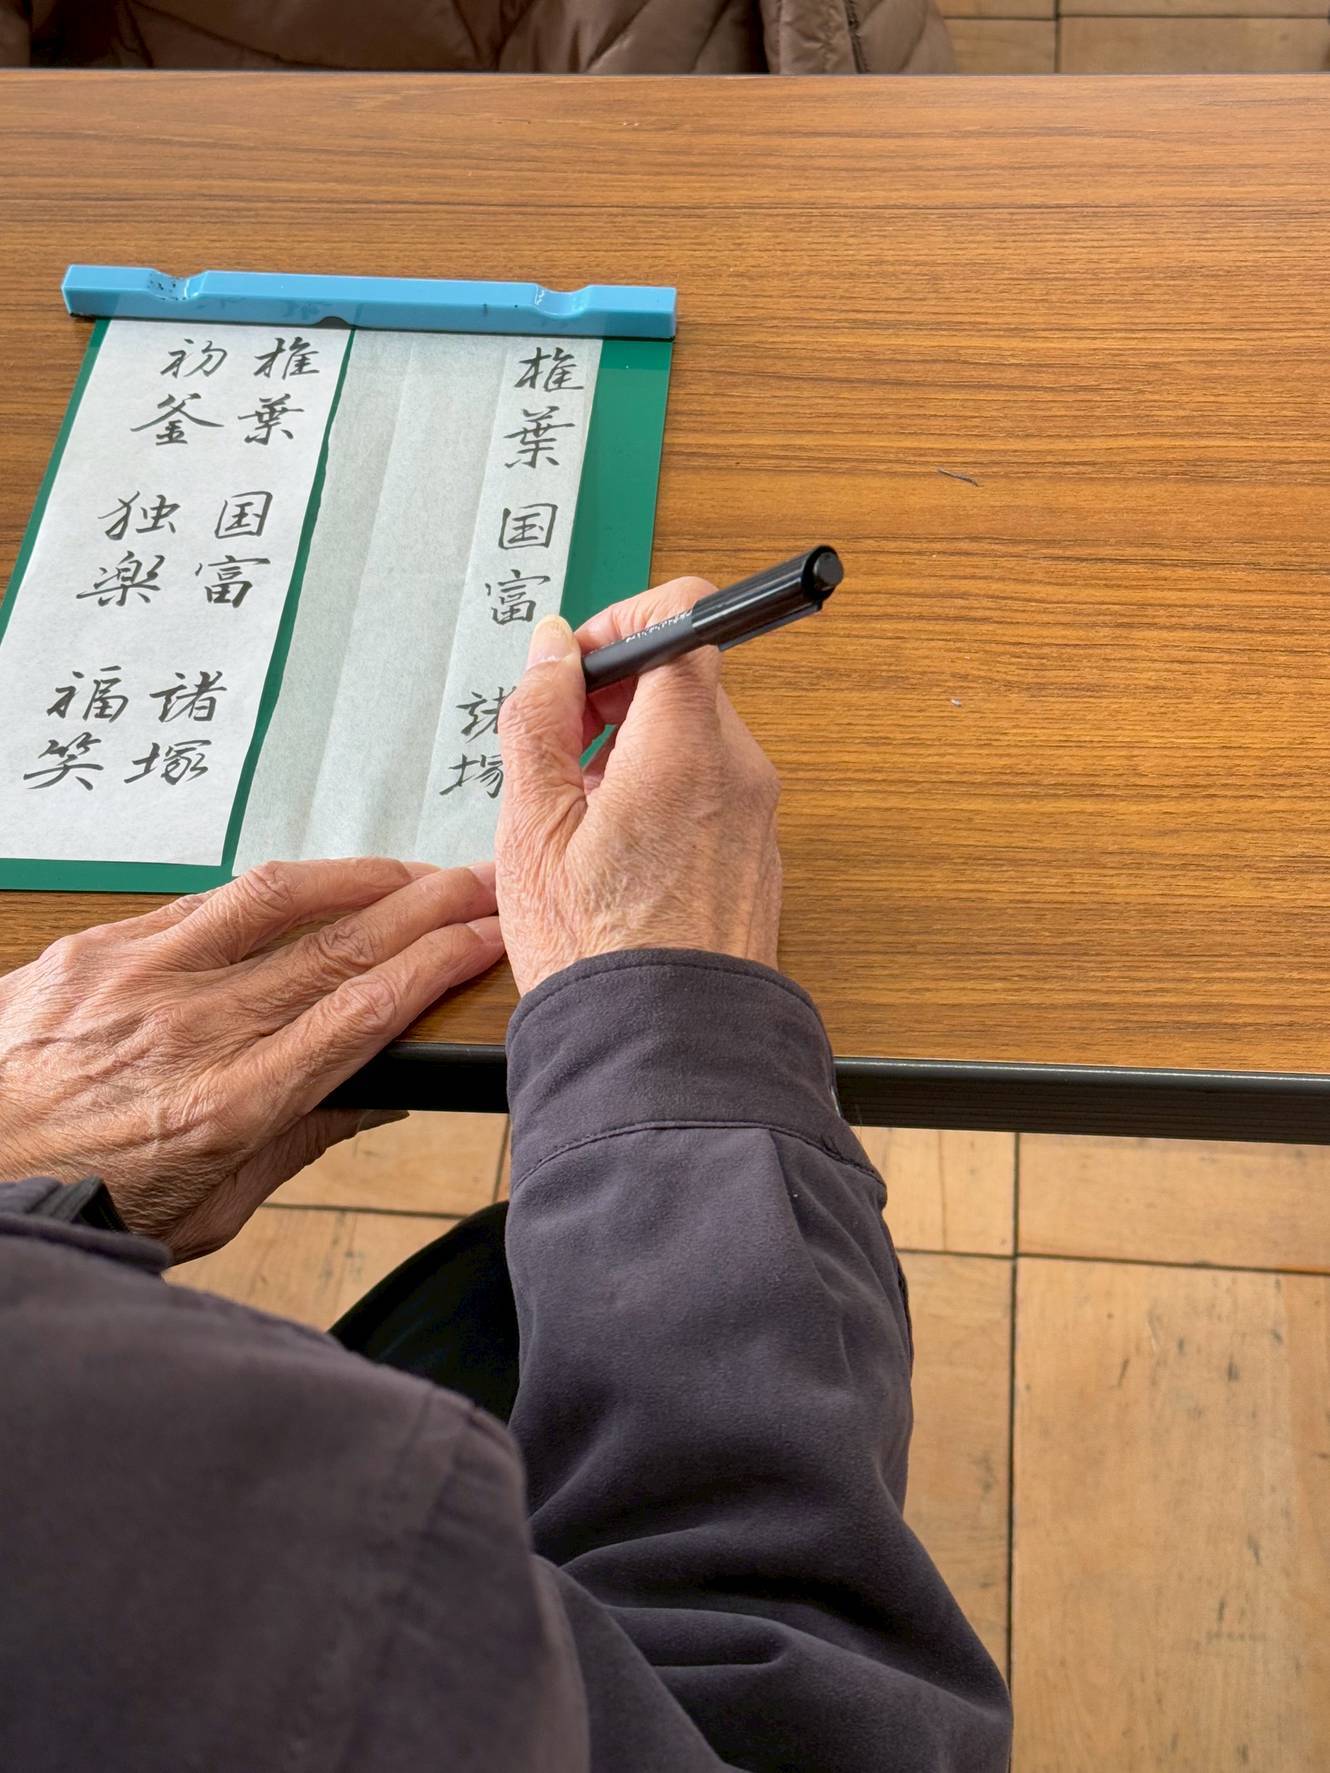 椎葉 国富 諸塚
椎葉 国富 諸塚
初釜 独楽 福笑